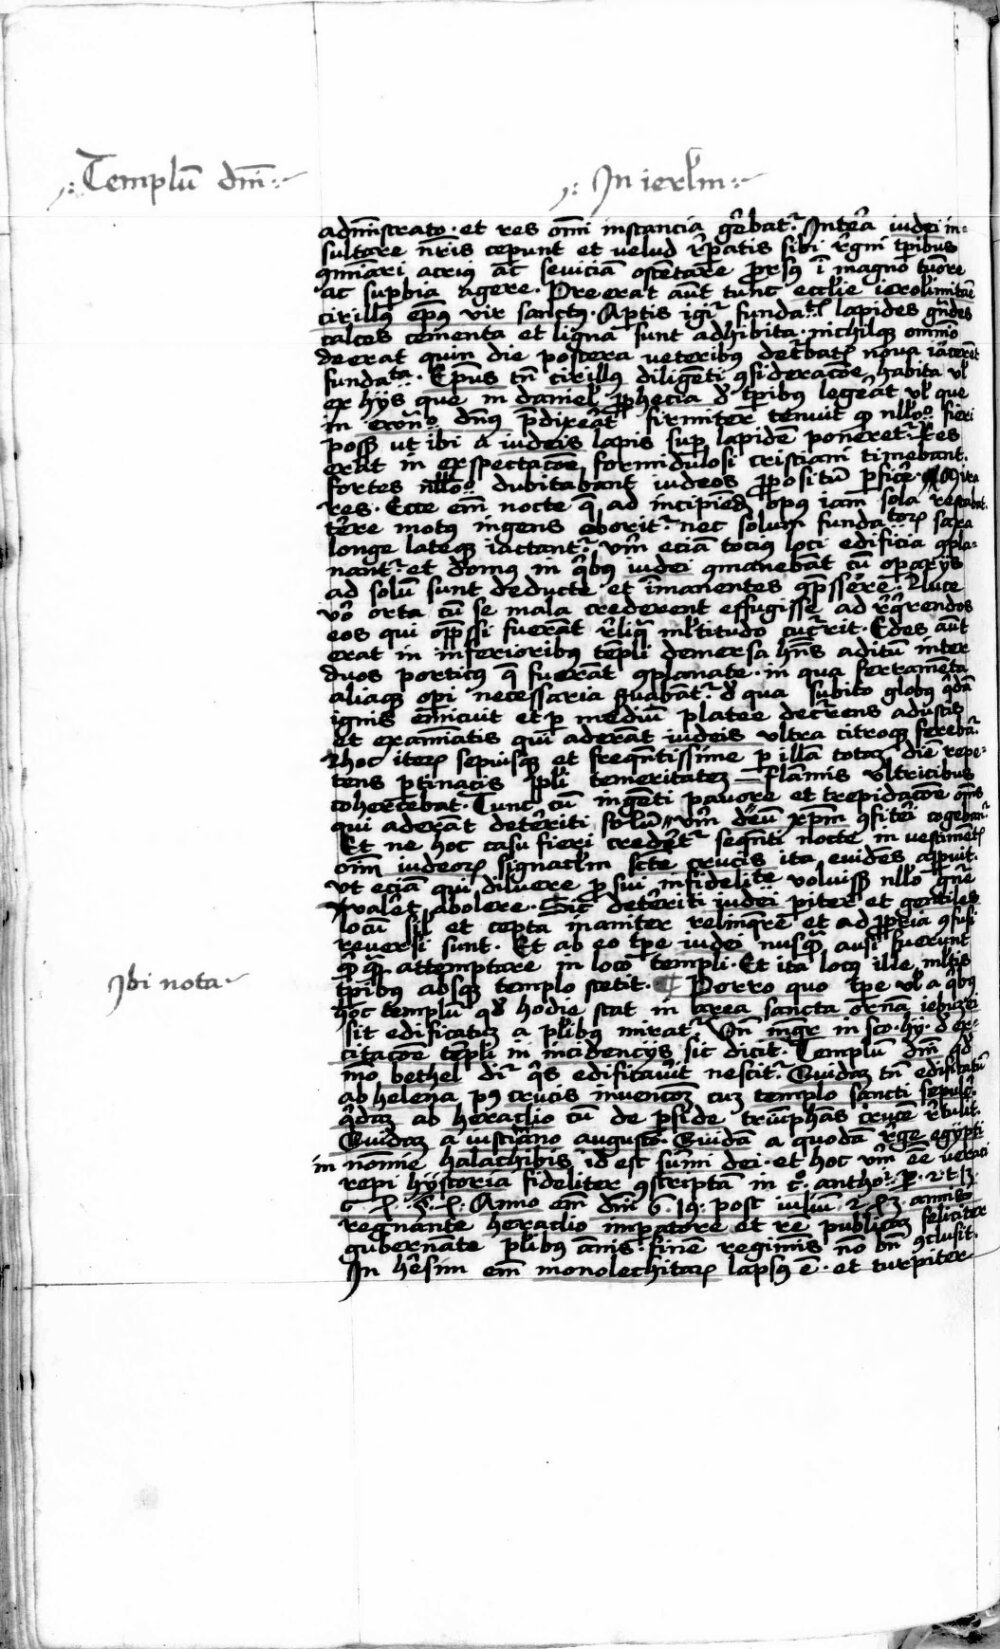 Templū dm̄
In ierl̄m
adm̄istrato · et res om̄i instancia gēbat᷑ Inteā iudei in=
sultare nr̄is ceperunt et velud rꝑatis sibi rḡni tꝑibus
ꝯminari acrius ac seuiciā oste̅tare ꝓrsus ī magno tūore
ac suꝑbia agere · Preerat aūt tunc ecclie ierolimitāe
cirillꝰ ep̄us vir sanctꝰ · Aptis igit᷑ lapides gn̄des
calces cementa et ligna sunt adhibita · nichilqꝫ om̄io
deerat quin die postera veteribus noua iacerēt
funda ta · Ep̄us tn̄ cirillꝰ diligenti ꝯsideracōe habita vl̄
ex hys que in daniel ꝓphecia de tꝑibus legerāt vl̄ que
in dn̄us p̄dixerāt firmiter tenuit ꝙ nll̄o fieri
posse vt ibi a iudeis lapis suꝑ lapidē poneret᷑ Res
erat in exspectacōe formidulosi cristiani timebant ·
fortes dubitabant iudeos ꝓpositū ꝑficē · Mira
res · Ecce em̄ nocte q̄ ad incipiēd opus iam sola restabat
tere motus ingens oborit᷑ nec solum funda toꝝ saxa
longe lateqꝫ iactant᷑ vm̄ eciā tocius loci edificia ꝯpla=
nant᷑ et domus in qͥbus iudei ꝯmanebāt cū oꝑarijs
ad solū sunt deducte et īmanentes ꝯp̄ssere · Luce
vō orta cū se mala crederent effugisse ad rq̄rendos
eos qui opp̄ssi fuerāt rliq̄ ml̄titudo cuc̄rit · Edes aūt
erat in inferioribus tēpli demersa hn̄s aditū inter
duos porticus q̄ fuerāt ꝯplanate · in qua ferramēta
aliaqꝫ oꝑi necessaria ẜuabāt᷑ de qua subito globus qͥdā
ignis emicuit et ꝑ mediū platee decrens adustis
et exanīatis qui aderāt iudeis vltra citroqꝫ ferebā᷑
hoc iteꝝ sepiusqꝫ et freqn̄tissime ꝑ illā totaꝫ die repe=
tens ꝑtinacis ppli temeritateꝫ flāmis vltricibus
cohercebat · Tunc cū ingēti pauore et trepidacōe om̄s
qui aderāt det̄riti solū vm̄ deū xp̄m ꝯfiteri cogebāt᷑
Et ne hoc casu fieri credet᷑ seqn̄ti nocte in vestimētꝭ
om̄i iudeoꝝ signacl̄m scte crucis ita euidēs apꝑuit ·
vt eciā qui diluere ꝑ sui infidelitate voluisset nllo gn̄e
valēt abolere · Sic det̄riti iudei piter et gentiles
locū sil̄ et cepta inaniter relinqr̄e et ad ꝓpria ꝯfusi
reuersi sunt · Et ab eo tꝑe iudei nusqͣ ausi fuerunt
qͥqͣ attemptare in loco templi · Et ita locus ille ml̄tis
tꝑibus absqꝫ templo stetit · ¶ Porro quo tꝑe vl̄ a qͥbus
hoc templū qd hodie stat in area sancta ornā iebuzei
sit edificatuꝫ a pl̄ibus mirat᷑ Vn̄ in sco · hy · de ex=
citacōe tēpli in incidencijs sic dicit · Templū dm̄ qd
mō bethel dr̄ qͥs edificauit nescit᷑ Quidaꝫ tn̄ edificatū
ab helena pꝰ crucis inuencōꝫ cuꝫ templo sancti sepulc̄ ·
qͥdaꝫ ab heraclio cū de ꝑside triūphās crucē rtulit ·
Quidaꝫ a iustiāno augusto · Quidā a quodā rḡe egypti
in nomīe halachibis id est sūmi dei · et hoc vm̄ ēe veraci
reꝑi hystoria fideliter ꝯscriptā in c̄ · antho · p̄ · 2 · t 13 ·
Anno em̄ dm̄ 6 · 19 · post iuliū 2 annis
regnante heraclio imꝑatore et rē publicaꝫ feliciter
gubernāte pl̄ibus annis · finē regiminis nō bn̄ ꝯclusit ·
In hēsim em̄ monolechitaꝝ lapsus ē · et turpiter
Ibi nota